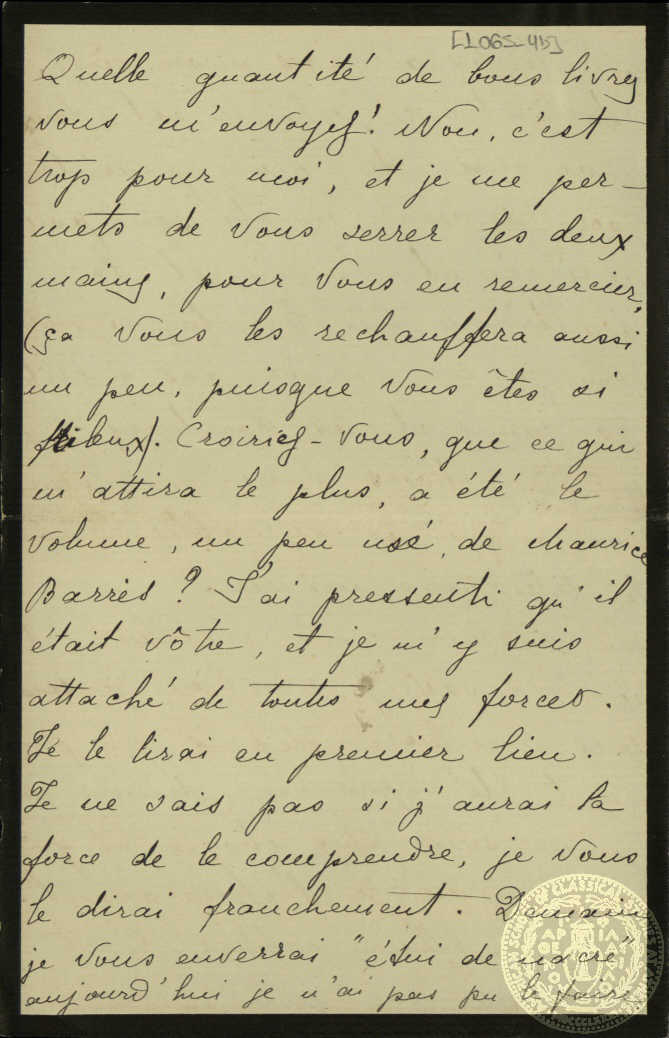 [1065-45]
Quelle quantité de bons livres
vous m'envoyez! Non, c'est
trop pour moi, et je me per-
mets de vous serrer les deux
mains, pour vous en remercier,
(ça vous les rechauffera aussi
un peu, puisque vous êtes si
frileux). Croiriez-vous, que ce qui
m'attira le plus, a été le
volume, un peu usé, de Maurice
Barrès? J'ai pressenti qu'il
était vôtre, et je m'y suis
attaché de toutes mes forces.
Je le lirai en premier lieu.
Je ne sais pas si j'aurai la
force de le comprendre, je vous
le dirai franchement. Demain
je vous enverrai "étui de nacre"
aujourd'hui je n'ai pas pu le faire